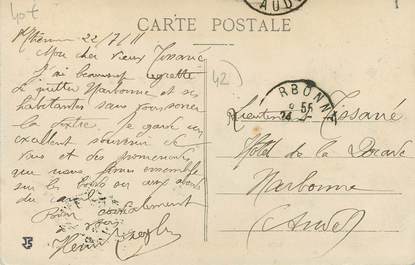 40€
AUDE
CARTE POSTALE
St Etienne 22/7/11
Mon cher vieux Tissané
J'ai beaucoup regretté
de quitter Narbonne et ses
habitants sans vous serrer
la Je garde un
excellent souvenir de
vous et des promenades
que nous fîmes ensemble
sur les bords ou aux abords
du
Bien cordialement
Henri
42)
RBONNE
55
24
Lieutenant Tissané
Hôtel de la Dorade
Narbonne
(Aude)